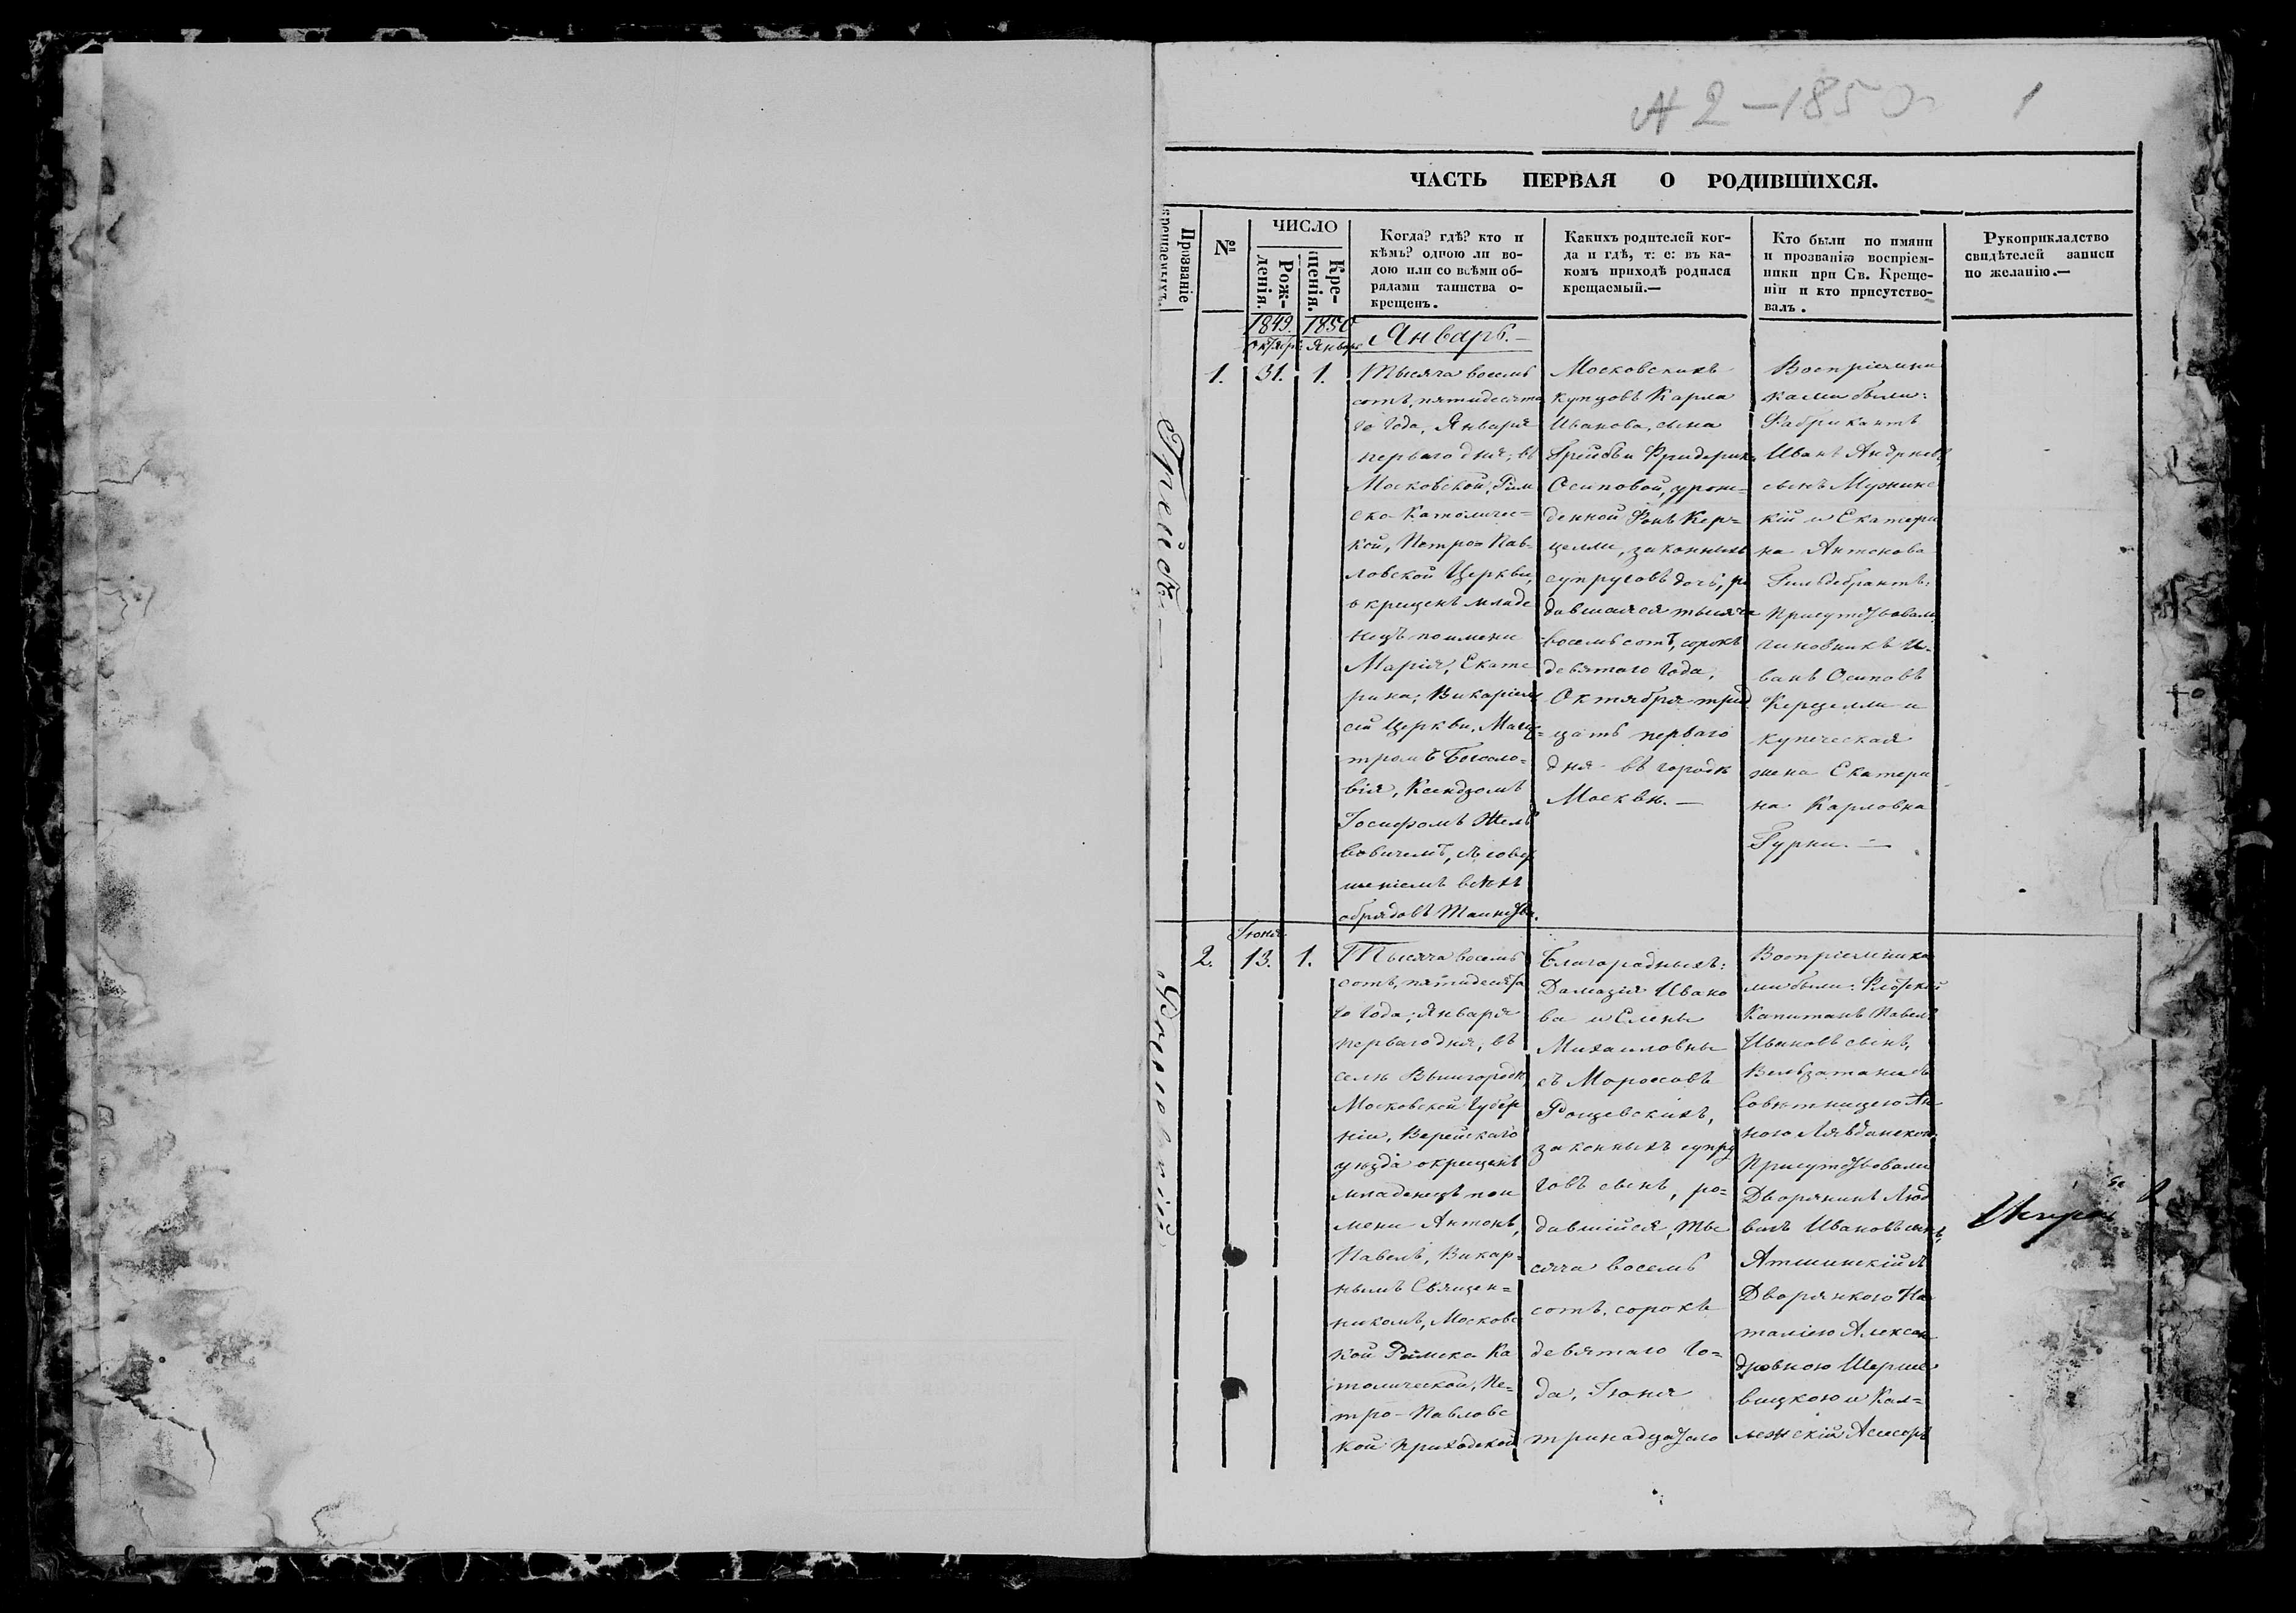 № 2 – 1850 1
ЧАСТЬ ПЕРВАЯ О РОДИВШИХСЯ.
Прозваніе крещаемыхъ.
№
ЧИСЛО
Рож-
денія.
Кре-
щенія.
Когда? гдѣ? кто и
кѣмъ? одною ли во-
дою или со всѣми об-
рядами таинства о-
крещенъ.
Какихъ родителей ког-
да и гдѣ, т: е: въ ка-
комъ приходѣ родился
крещаемый.—
Кто были по имяни
и прозванію воспріем-
ники при Св. Креще-
ніи и кто присутство-
валъ.
Рукоприкладство
свидѣтелей записи
по желанію.—
1849. 1850
Октябрь Январь
Январь.—
1. 31. 1.
Тысяча восемь
сотъ, пятидесята
го Года, Января
перваго дня, въ
Московской, Рим
ско Католичес=
кой, Петро=Пав-
ловской Церкви,
окрещенъ младе
нецъ по имени
Марія, Екате
рина; Викаріемъ
сей Церкви, Магис=
тромъ Богосло=
вія, Ксендзомъ
Іосифомъ
всѣхъ
обрядовъ Таинства.
Московскихъ
купцовъ Карла
Иванова, сына
Фридерики
Осиповой, урож=
денной Фонъ Кер=
целли, законныхъ
супруговъ дочь, ро
дившаяся тысяча
восемь сотъ, сорокъ
девятаго Года,
Октября трид
цать перваго
дня въ городѣ
Москвѣ.—
Воспріемни
ками были:
Фабрикантъ
Иванъ Андреевъ
сынъ
кій и Екатери
на Антонова
Гильдебрантъ;
Присутствовали
чиновникъ И-
ванъ Осиповъ
Керцелли и
купеческая
жена Екатери
на Карловна
Іюня
2. 13. 1.
Тысяча восемь
сотъ, пятидесята
го Года, Января
перваго дня, въ
селѣ Вышгородѣ
Московской Губер
ніи, Верейскаго
уѣзда окрещенъ
младенецъ по и
мени Антонъ,
Павелъ, Викар=
нымъ Священ=
никомъ, Московс
кой Римско Ка
толической, Пе=
тро-Павловс
кой приходской
Благородныхъ:
Дамазія Ивано
ва и Елены
Михаиловны
съ
законныхъ супру
говъ сынъ, ро=
дившійся, Ты
сяча восемь
сотъ, сорокъ
девятаго Го=
да, Іюня
тринадцатаго
Воспріемника
ми были: Флотскій
Капитанъ Павелъ
Ивановъ сынъ,
Совѣтницею Ан
ною
Присутствовали
Дворянинъ Люд
вигъ Ивановъ сынъ,
Дворянкою На
таліею Алексан
дровною
и Кол=
лежскій Асесоръ